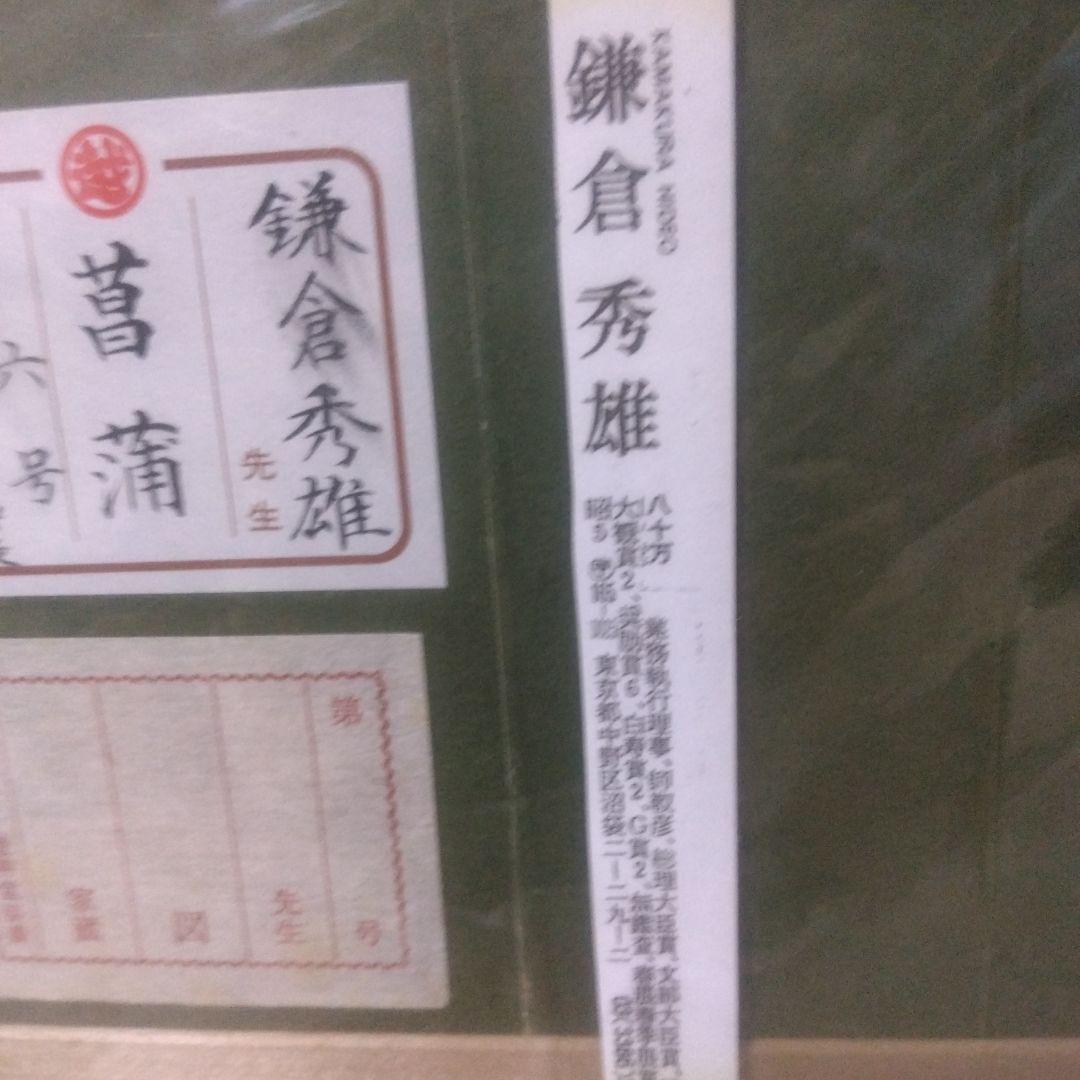 鎌倉秀雄
KAMAKURA HIDEO
八十万 業務執行理事。師敎彦。総理大臣賞、文部大臣賞、
大観賞2、奨励賞6、白寿賞2。G賞2。無鑑査、春展春季展賞
昭5 東京都中野区沼袋二ー二九ー二
越
鎌倉秀雄
先生
菖蒲
六号
第 号
先生
図
家蔵